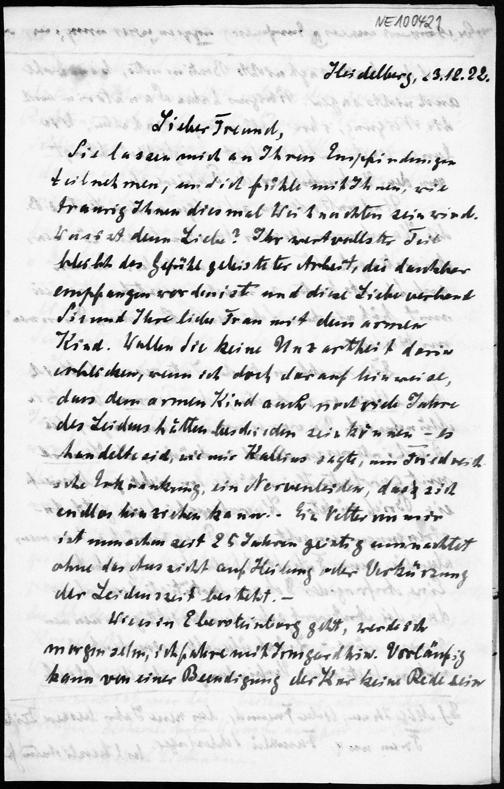 NE100421
Heidelberg, 23.12.22.
Lieber Freund,
Sie lassen mich an Ihren Empfindungen
teilnehmen, und ich fühle mit Ihnen, wie
traurig Ihnen diesmal Weihnachten sein wird.
Was ist denn Liebe? Ihr wertvollster Teil
bleibt das Gefühl geleisteter Arbeit, die dankbar
empfangen worden ist und diese Liebe verband
Sie und Ihre liebe Frau mit dem armen
Kind. Wollen Sie keine Unzartheit darin
erblicken, wenn ich doch darauf hinweise,
dass dem armen Kind auch noch viele Jahre
des Leidens hätten beschieden sein können – es
handelte sich, wie mir Kallius sagte, um Friedreich
sche Erkrankung, ein Nervenleiden, dass sich
endlos hinziehen kann. – Ein Vetter von mir
ist nun schon seit 25 Jahren geistig umnachtet
ohne das Aussicht auf Heilung oder Verkürzung
der Leidenszeit besteht. –
Wie es in Ebersteinburg geht, werde ich
morgen sehn, ich fahre mit Irmgard hin. Vorläufig
kann von einer Beendigung der Kur keine Rede sein